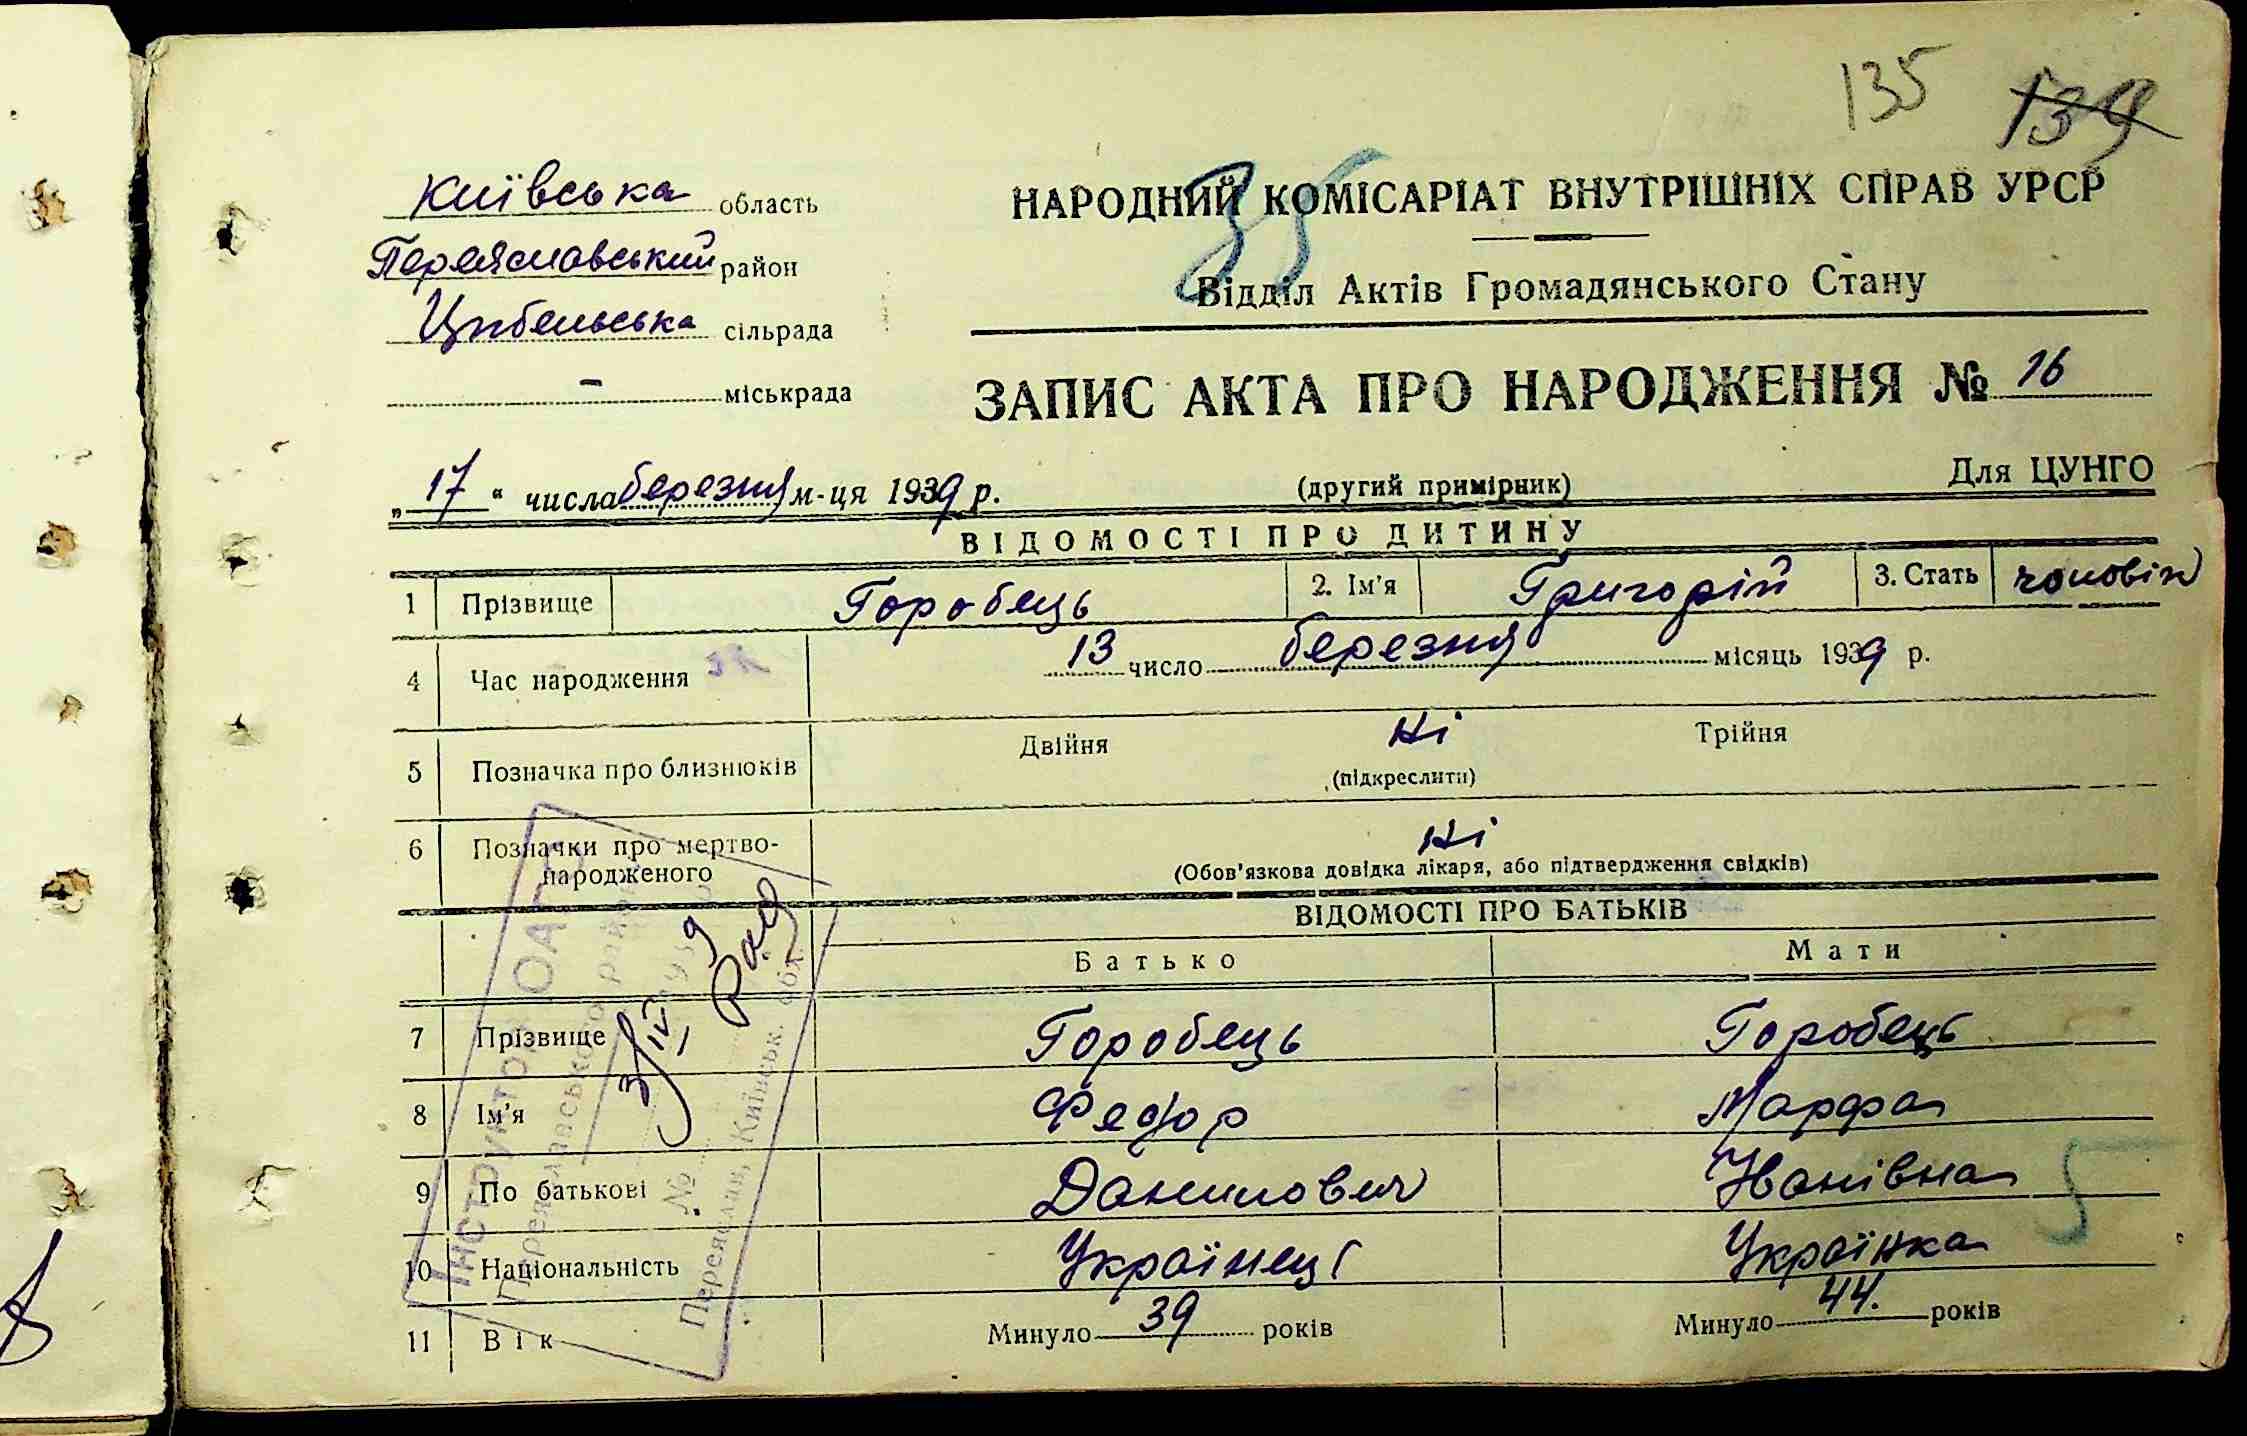 135 139
Київська область
Переяславський район
Цибельська сільрада
- міськрада
35
НАРОДНИЙ КОМІСАРІАТ ВНУТРІШНІХ СПРАВ УРСР
Відділ Актів Громадянського Стану
ЗАПИС АКТА ПРО НАРОДЖЕННЯ № 16
„17“ числа березня м-ця 1939 р. (другий примірник) Для ЦУНГО
ВІДОМОСТІ ПРО ДИТИНУ
1 Прізвище Горобець 2. Ім'я Григорій 3. Стать чоловіч
4 Час народження 13 число березня місяць 1939 р.
5 Позначка про близнюків Двійня Ні Трійня
(підкреслити)
6 Позначки про мертво-народженого Ні
(Обов'язкова довідка лікаря, або підтвердження свідків)
ВІДОМОСТІ ПРО БАТЬКІВ
Батько Мати
7 Прізвище Горобець Горобець
8 Ім'я Федор Марфа
9 По батькові Данилович Иванівна
10 Національність Українець Українка
5
11 Вік Минуло 39 років Минуло 44. років
Інструктор ОАГС
Переяславського рай
№
Переяслав, Київськ. обл.